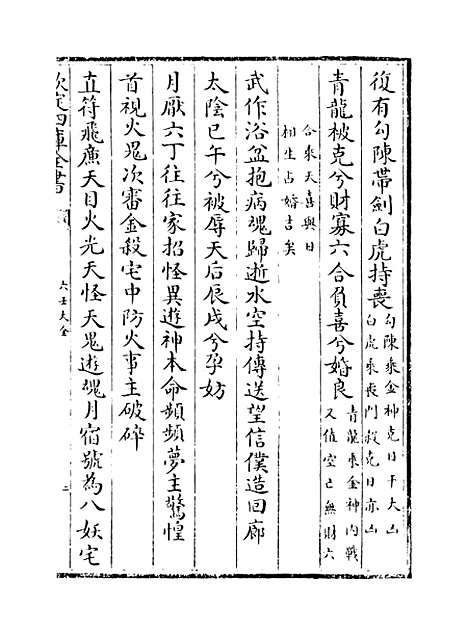 復有勾陳帶劍白虎持喪勾陳乘金神克日干大凶白虎乘喪門殺克日亦凶
青龍被克兮財寡六合負喜兮婚良青龍乘金神内戰又值空亡無財六
合乘天喜與日相生占婚吉矣
武作浴盆抱病魂歸逝水空持傳送望信僕造回廊
太陰巳午兮被辱天后辰戌兮孕妨
月厭六丁往往家招怪異遊神本命頻頻夢主驚惶
首視火鬼次審金殺宅中防火事主破碎
直符飛廉天目火光天怪天鬼遊魂月宿號為八妖宅
欽定四庫全書
六壬大全
二